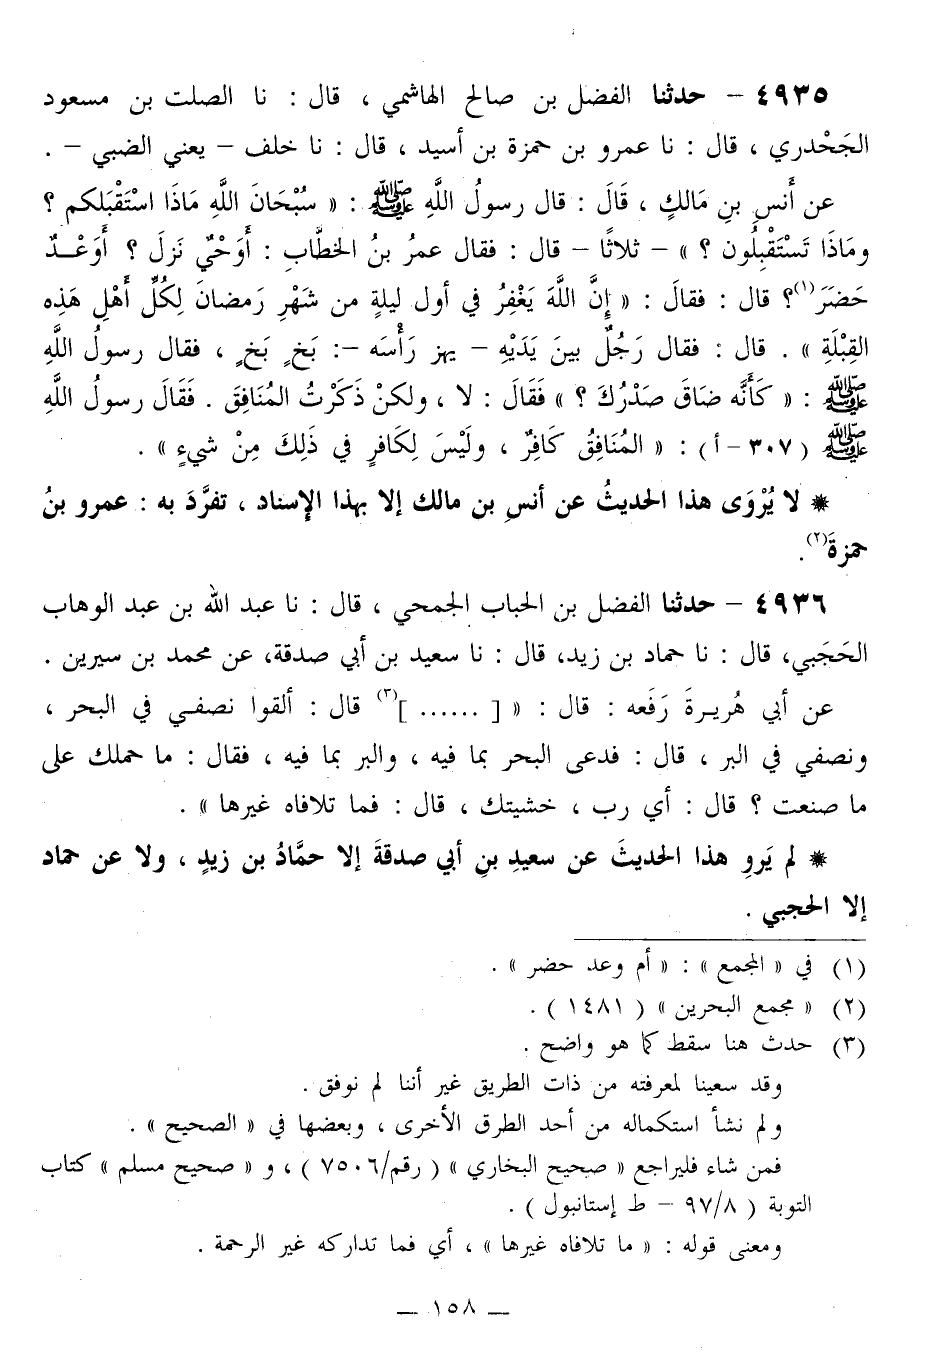 ٤٩٣٥ – حدثنا الفضل بن صالح الهاشمي ، قال : نا الصلت بن مسعود
الجَحْدري ، قال : نا عمرو بن حمزة بن أسيد ، قال : نا خلف – يعني الضبي – .
عن أَنسِ بنِ مَالكٍ ، قَالَ : قال رسولُ اللَّهِ ﷺ : « سُبْحَانَ اللَّهِ مَاذَا اسْتَقْبَلكم ؟
ومَاذَا تَسْتَقْبِلُون ؟ » – ثلاثًا – قال : فقال عمرُ بنُ الخطَّابِ : أَوَحْيٌ نَزلَ ؟ أَوَعْـدٌ
حَضَرَ(١)؟ قال : فقالَ : « إِنَّ اللَّهَ يَغْفِرُ في أول ليلةٍ من شَهْرِ رَمضانَ لِكُلِّ أَهْلِ هَذِه
القِبْلَةِ » . قال : فقال رَجُلٌ بينَ يَدَيْهِ – يهز رَأْسَه –: بَخٍ بَخٍ ، فقال رسولُ اللَّهِ
ﷺ : « كَأَنَّه ضَاقَ صَدْرُكَ ؟ » فَقَالَ : لا ، ولكنْ ذَكَرْتُ المُنَافِقَ . فَقَالَ رسولُ اللَّهِ
ﷺ ( ٣٠٧ – أ ) : « المُنَافِقُ كَافِرٌ ، ولَيْسَ لِكَافرٍ في ذَلِكَ مِنْ شيءٍ » .
✵ لا يُرْوَى هذا الحديثُ عن أنسِ بن مالك إلا بهذا الإسناد ، تفرَّدَ به : عمرو بنُ
حمزةَ(٢).
٤٩٣٦ – حدثنا الفضل بن الحباب الجمحي ، قال : نا عبد الله بن عبد الوهاب
الحَجَبي، قال : نا حماد بن زيد، قال : نا سعيد بن أبي صدقة، عن محمد بن سيرين .
عن أبي هُريـرةَ رَفَعه : قال : « [ ...... ](٣) قال : ألقوا نصفـي في البحر ،
ونصفي في البر ، قال : فدعى البحر بما فيه ، والبر بما فيه ، فقال : ما حملك على
ما صنعت ؟ قال : أي رب ، خشيتك ، قال : فما تلافاه غيرها » .
✵ لم يَروِ هذا الحديثَ عن سعيدِ بنِ أبي صدقةَ إلا حمَّادُ بن زيدٍ ، ولا عن حماد
إلا الحجبي .
(١) في « المجمع » : « أم وعد حضر » .
(٢) « مجمع البحرين » ( ١٤٨١ ) .
(٣) حدث هنا سقط كما هو واضح .
وقد سعينا لمعرفته من ذات الطريق غير أننا لم نوفق .
ولم نشأ استكماله من أحد الطرق الأخرى ، وبعضها في « الصحيح » .
فمن شاء فليراجع « صحيح البخاري » ( رقم/٧٥٠٦ ) ، و « صحيح مسلم » كتاب
التوبة ( ٩٧/٨ – ط إستانبول ) .
ومعنى قوله : « ما تلافاه غيرها » ، أي فما تداركه غير الرحمة .
— ١٥٨ —